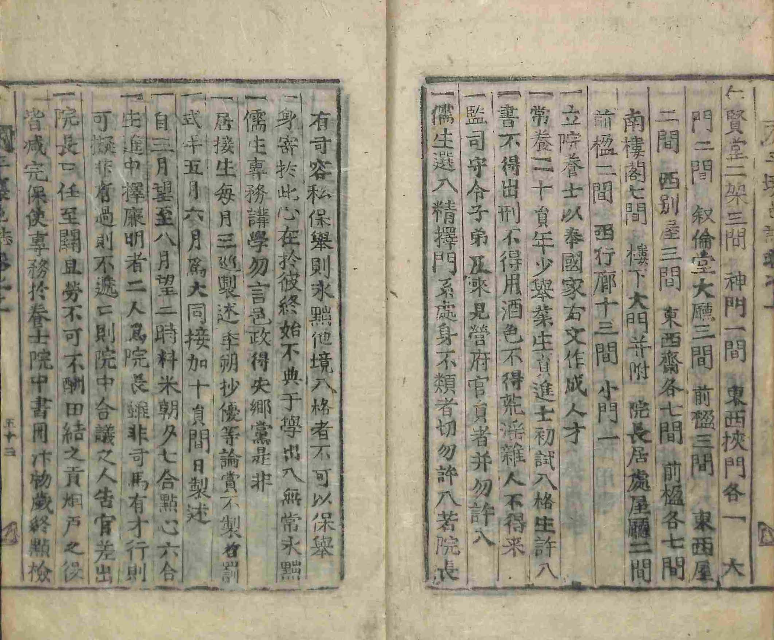 仁賢堂二架三間 神門一間 東西挾門各一 大
門二間 叙倫堂大廳三間 前楹三間 東西屋
二間 西別屋三間 東西齋各七間 前楹各七間
南樓閣七間 樓下大門并附 院長居處屋廳二間
前楹二間 西行廊十三間 小門一
一立院養士以奉國家右文作成人才
一常養二十員年少擧業生員進士初試入格生許入
一書不得出刑不得用酒色不得荒淫雜人不得来
一監司守令子弟及來見營府官員者并勿許入
一儒生選入精擇門系處身不類者切勿許入若院長
有司容私保擧則永黜他境入格者不可以保擧
一身寄於此心在於彼終始不典于學出入無常永黜
一儒生專務講學勿言邑政得失鄕黨是非
一居接生每月三巡製述季朔抄優等論賞不製者罰
一式年五月六月爲大同接加十員間日製述
一自二月望至八月望二時料米朝夕七合點心六合
一生進中擇廉明者二人爲院長雖非司馬有才行則
可擬作者過則不遞二則院中合議之人告官差出
一院長之任至關且勞不可不酬田結之貢烟戶之役
皆减完保使專務於養士院中書冊什物歲終點檢
五十三